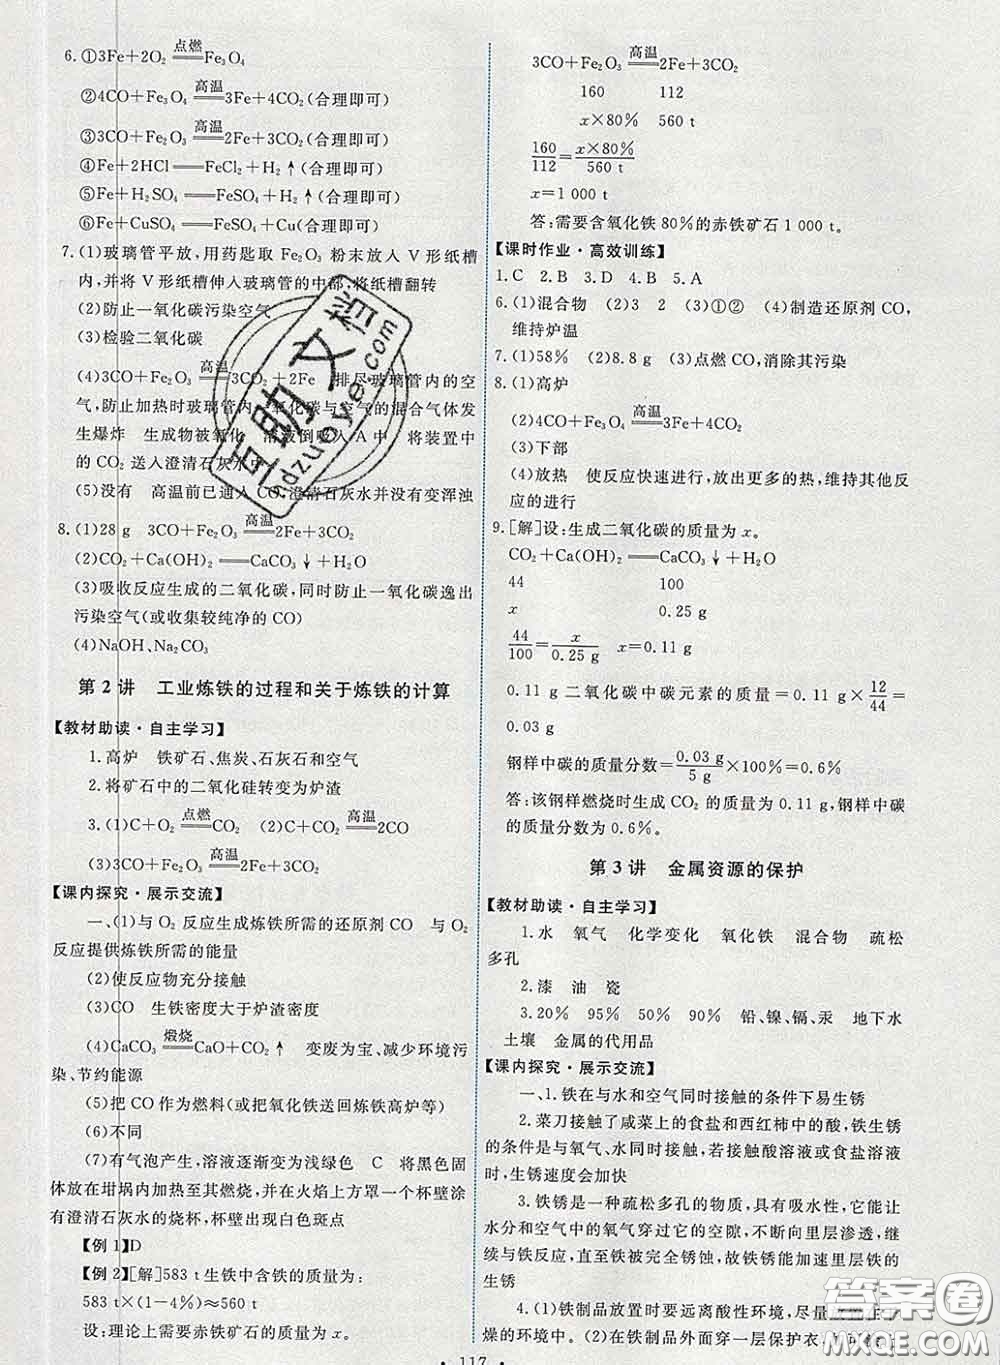 6.①3Fe+2O₂ =点燃= Fe₃O₄
②4CO+Fe₃O₄ =高温= 3Fe+4CO₂(合理即可)
③3CO+Fe₂O₃ =高温= 2Fe+3CO₂(合理即可)
④Fe+2HCl══FeCl₂+H₂↑(合理即可)
⑤Fe+H₂SO₄══FeSO₄+H₂↑(合理即可)
⑥Fe+CuSO₄══FeSO₄+Cu(合理即可)
7.(1)玻璃管平放,用药匙取Fe₂O₃粉末放人V形纸槽
内,并将V形纸槽伸入玻璃管的中部,将纸槽翻转
(2)防止一氧化碳污染空气
(3)检验二氧化碳
(4)3CO+Fe₂O₃ =高温= 3CO₂+2Fe 排尽玻璃管内的空
气,防止加热时玻璃管内一氧化碳与空气的混合气体发
生爆炸 生成物被氧化 溶液倒吸入A中 将装置中
的CO₂送入澄清石灰水中
(5)没有 高温前已通入CO,澄清石灰水并没有变浑浊
8.(1)28 g 3CO+Fe₂O₃ =高温= 2Fe+3CO₂
(2)CO₂+Ca(OH)₂══CaCO₃↓+H₂O
(3)吸收反应生成的二氧化碳,同时防止一氧化碳逸出
污染空气(或收集较纯净的CO)
(4)NaOH、Na₂CO₃
第2讲 工业炼铁的过程和关于炼铁的计算
【教材助读·自主学习】
1.高炉 铁矿石、焦炭、石灰石和空气
2.将矿石中的二氧化硅转变为炉渣
3.(1)C+O₂ =点燃= CO₂ (2)C+CO₂ =高温= 2CO
(3)3CO+Fe₂O₃ =高温= 2Fe+3CO₂
【课内探究·展示交流】
一、(1)与O₂反应生成炼铁所需的还原剂CO 与O₂
反应提供炼铁所需的能量
(2)使反应物充分接触
(3)CO 生铁密度大于炉渣密度
(4)CaCO₃ =煅烧= CaO+CO₂↑ 变废为宝、减少环境污
染、节约能源
(5)把CO作为燃料(或把氧化铁送回炼铁高炉等)
(6)不同
(7)有气泡产生,溶液逐渐变为浅绿色 C 将黑色固
体放在坩埚内加热至其燃烧,并在火焰上方罩一个杯壁涂
有澄清石灰水的烧杯,杯壁出现白色斑点
【例1】D
【例2】[解]583 t生铁中含铁的质量为:
583 t×(1-4%)≈560 t
设:理论上需要赤铁矿石的质量为x。
3CO+Fe₂O₃ =高温= 2Fe+3CO₂
160 112
x×80% 560 t
160/112=x×80%/560 t
x=1 000 t
答:需要含氧化铁80%的赤铁矿石1 000 t。
【课时作业·高效训练】
1.C 2.B 3.D 4.B 5.A
6.(1)混合物 (2)3 2 (3)①② (4)制造还原剂CO,
维持炉温
7.(1)58% (2)8.8 g (3)点燃CO,消除其污染
8.(1)高炉
(2)4CO+Fe₃O₄ =高温= 3Fe+4CO₂
(3)下部
(4)放热 使反应快速进行,放出更多的热,维持其他反
应的进行
9.[解]设:生成二氧化碳的质量为x。
CO₂+Ca(OH)₂══CaCO₃↓+H₂O
44 100
x 0.25 g
44/100=x/0.25 g x=0.11 g
0.11 g二氧化碳中碳元素的质量=0.11 g×12/44=
0.03 g
钢样中碳的质量分数=0.03 g/5 g×100%=0.6%
答:该钢样燃烧时生成CO₂的质量为0.11 g,钢样中碳
的质量分数为0.6%。
第3讲 金属资源的保护
【教材助读·自主学习】
1.水 氧气 化学变化 氧化铁 混合物 疏松
多孔
2.漆 油 瓷
3.20% 95% 50% 90% 铅、镍、镉、汞 地下水
土壤 金属的代用品
【课内探究·展示交流】
一、1.铁在与水和空气同时接触的条件下易生锈
2.菜刀接触了咸菜上的食盐和西红柿中的酸,铁生锈
的条件是与氧气、水同时接触,若接触酸溶液或食盐溶液
时,生锈速度会加快
3.铁锈是一种疏松多孔的物质,具有吸水性,它能让
水分和空气中的氧气穿过它的空隙,不断向里层渗透,继
续与铁反应,直至铁被完全锈蚀,故铁锈能加速里层铁的
生锈
4.(1)铁制品放置时要远离酸性环境,尽量放置在干
燥的环境中。(2)在铁制品外面穿上一层保护衣,
·117·
互助文档
hdzuoye.com
答案圈
MXQE.COM